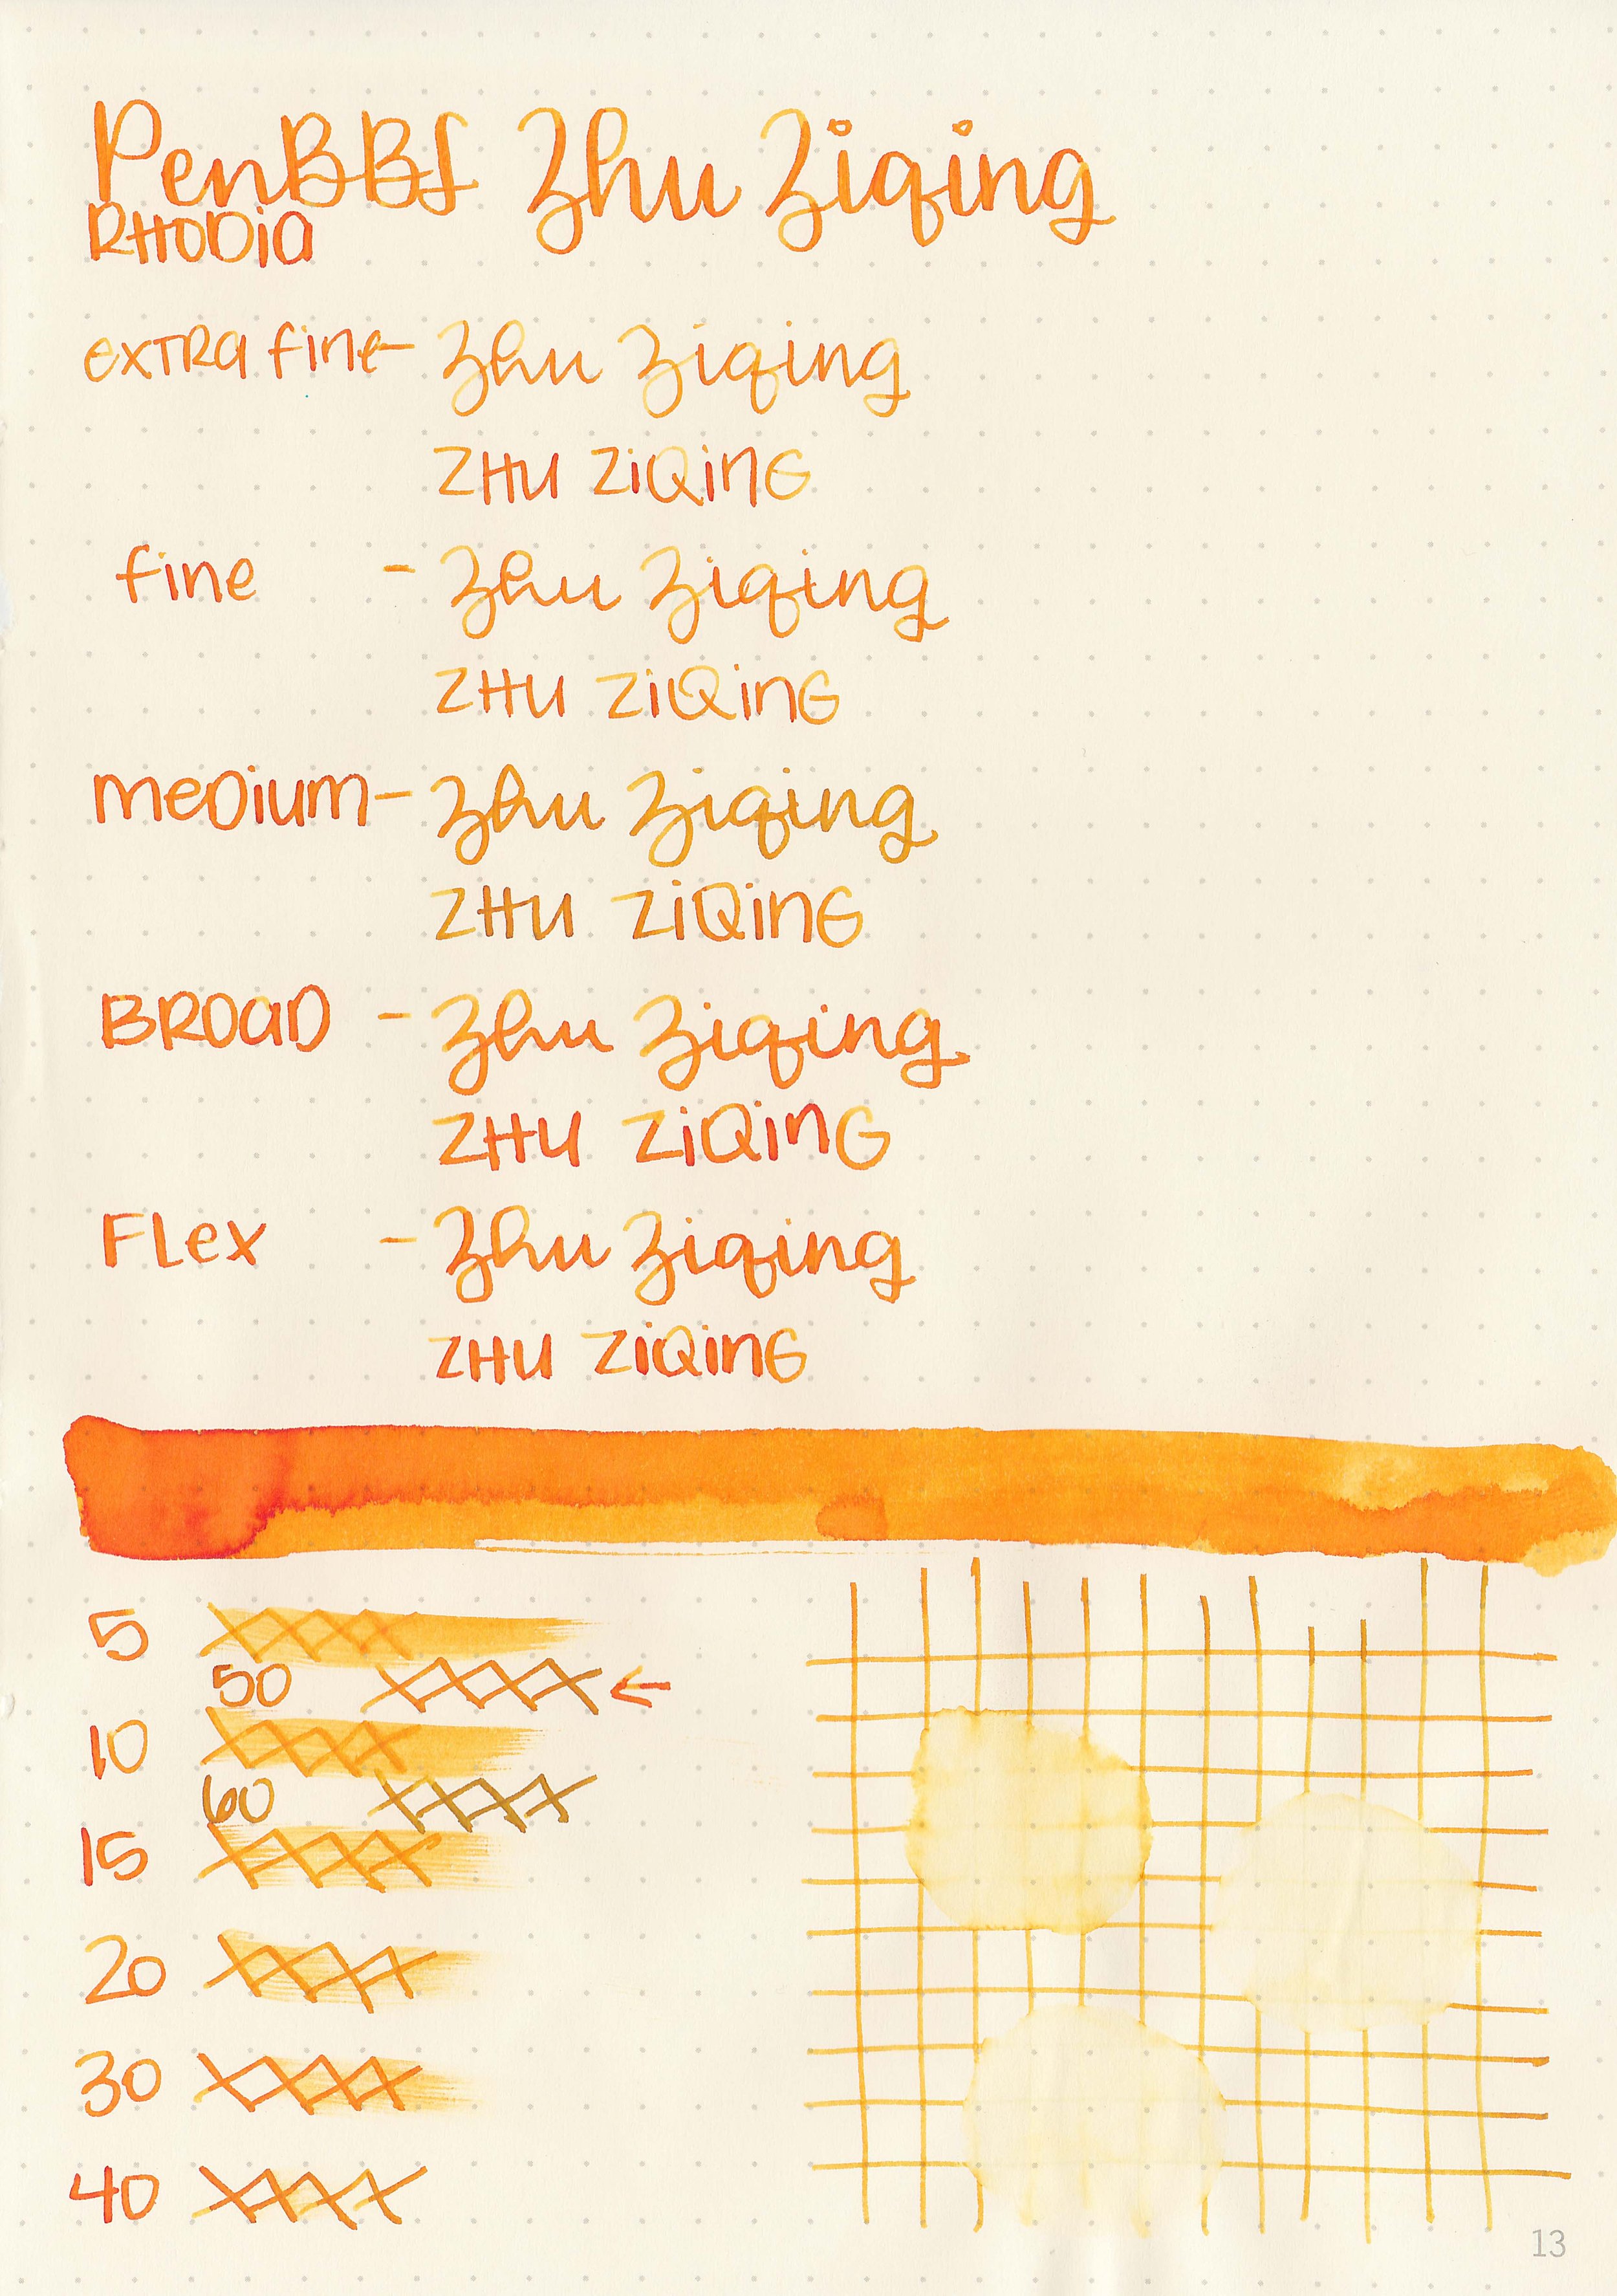 PenBBS Zhu Ziqing
RHODIA
EXTRA fine- Zhu Ziqing
ZHU ZiQinG
fine - Zhu Ziqing
ZHU ZiQinG
meDium- Zhu Ziqing
ZHU ZiQinG
BROAD - Zhu Ziqing
ZHU ZiQinG
FLex - Zhu Ziqing
ZHU ZiQinG
5
50 ←
10
60
15
20
30
40
13